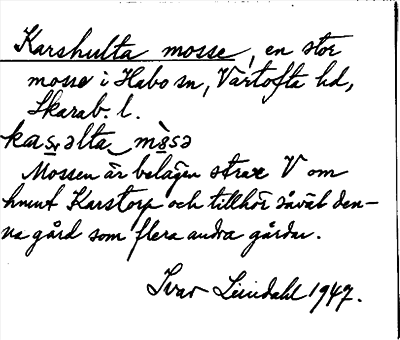 Karshulta mosse, en stor
mosse i Habo sn, Vartofta hd,
Skarab. l.
kas̩əlta mòsə
Mossen är belägen strax V om
hmnt Karstorp och tillhör såväl den-
na gård som flera andra gårdar.
Ivar Lindahl 1947.